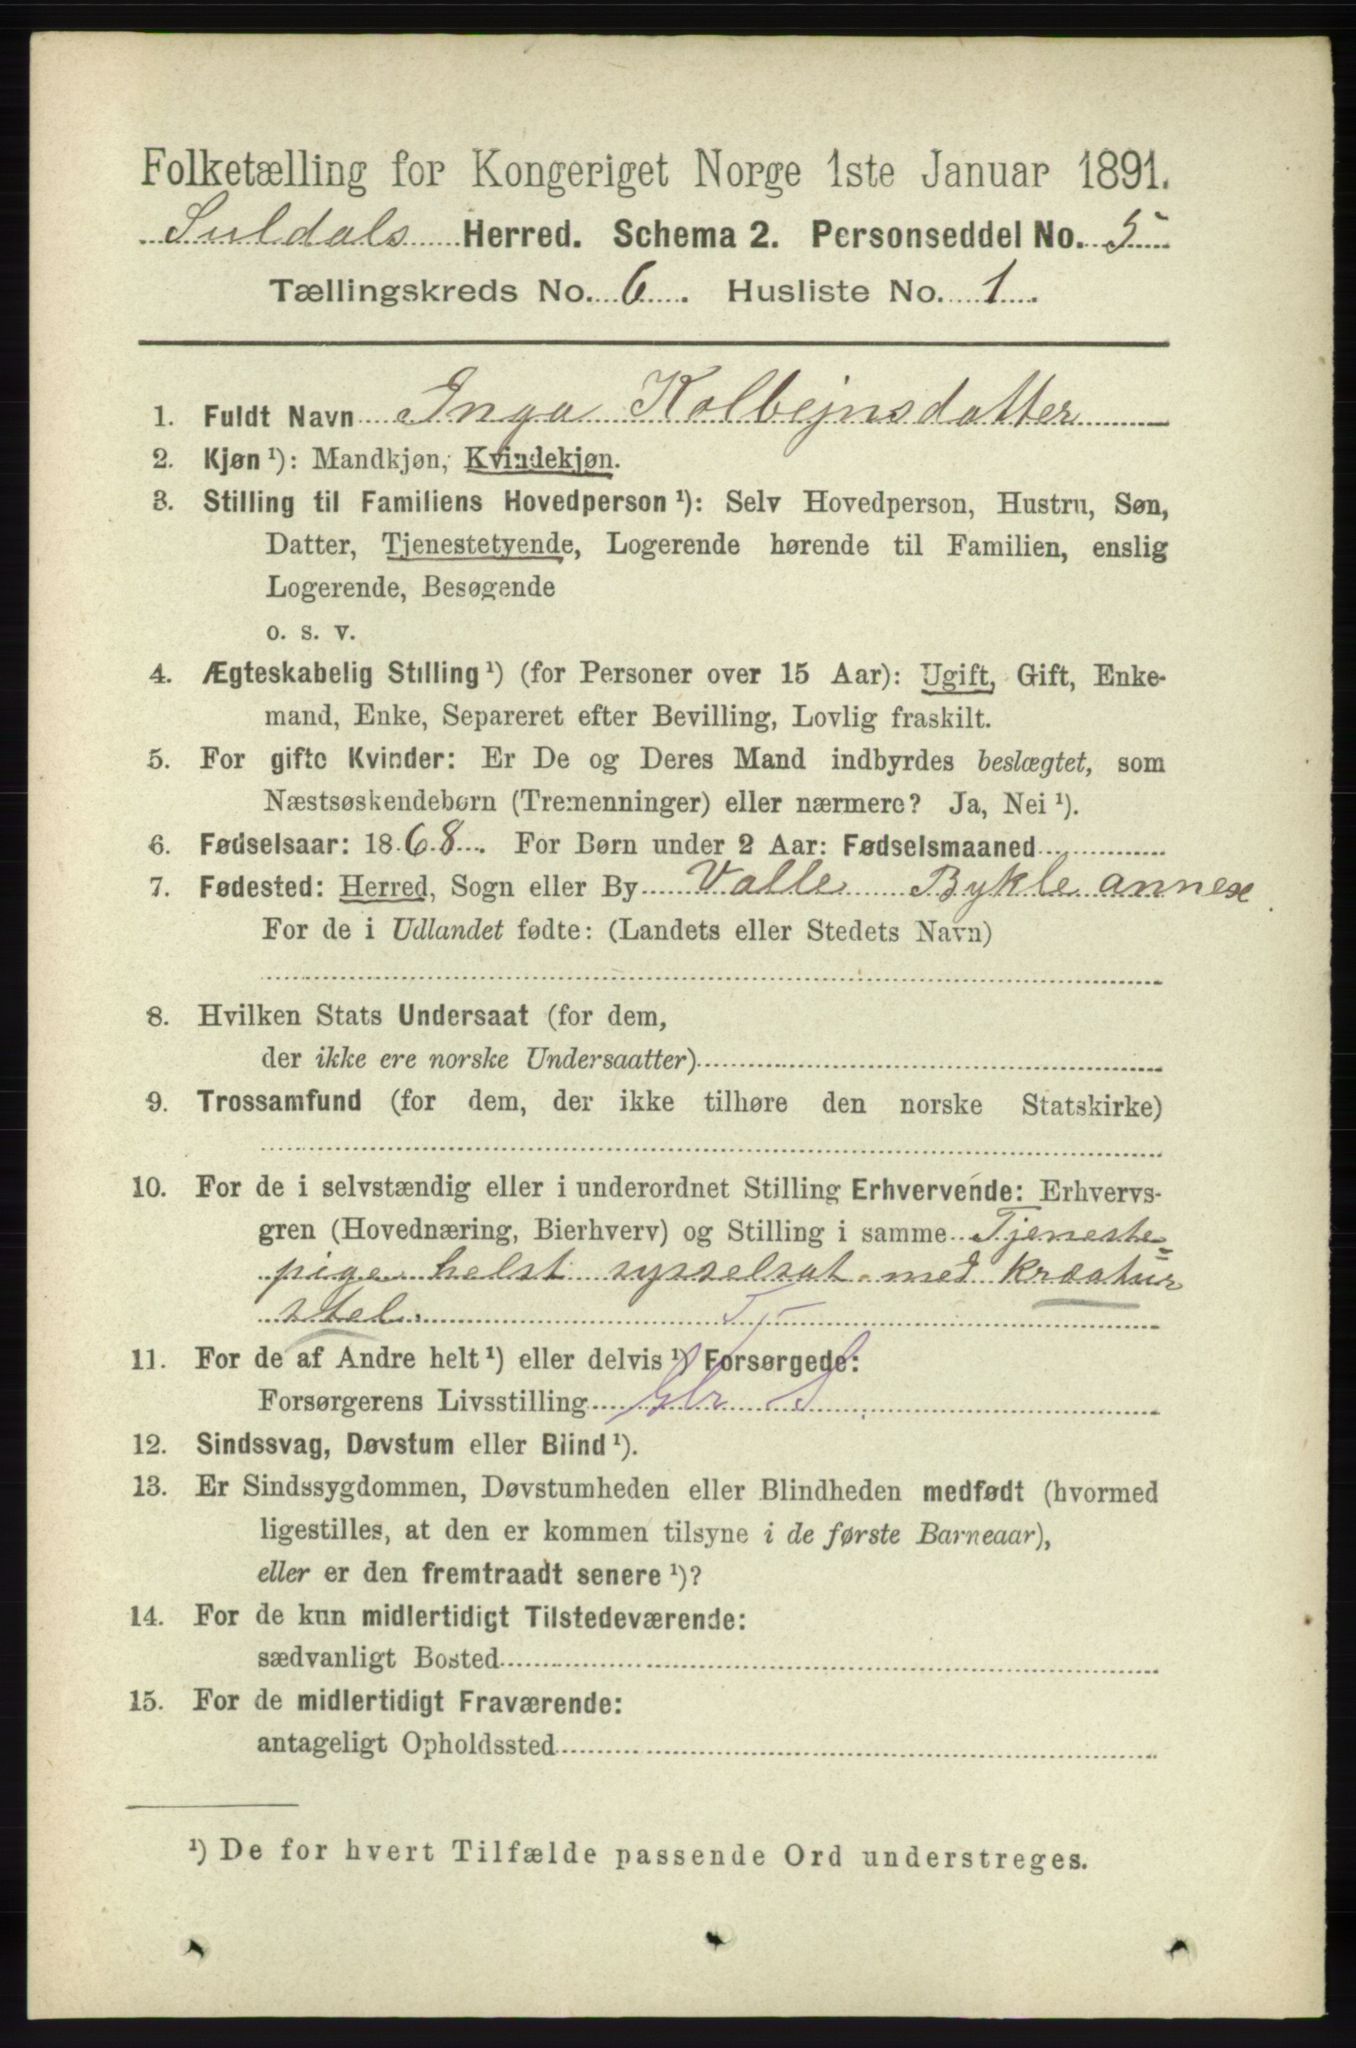 Folketælling for Kongeriget Norge 1ste Januar 1891.
Suldals Herred. Schema 2. Personseddel No. 5
Tællingskreds No. 6. Husliste No. 1.
1. Fuldt Navn Inga Kolbejnsdatter
2. Kjøn ¹): Mandkjøn, Kvindekjøn.
3. Stilling til Familiens Hovedperson ¹): Selv Hovedperson, Hustru, Søn,
Datter, Tjenestetyende, Logerende hørende til Familien, enslig
Logerende, Besøgende
o. s. v.
4. Ægteskabelig Stilling ¹) (for Personer over 15 Aar): Ugift, Gift, Enke-
mand, Enke, Separeret efter Bevilling, Lovlig fraskilt.
5. For gifte Kvinder: Er De og Deres Mand indbyrdes beslægtet, som
Næstsøskendebørn (Tremenninger) eller nærmere? Ja, Nei ¹).
6. Fødselsaar: 1868. For Børn under 2 Aar: Fødselsmaaned
7. Fødested: Herred, Sogn eller By Valle Bykle annex
For de i Udlandet fødte: (Landets eller Stedets Navn)
8. Hvilken Stats Undersaat (for dem,
der ikke ere norske Undersaatter)
9. Trossamfund (for dem, der ikke tilhøre den norske Statskirke)
10. For de i selvstændig eller i underordnet Stilling Erhvervende: Erhvervs-
gren (Hovednæring, Bierhverv) og Stilling i samme Tjeneste=
pige helst sysselsat med kreatur
stel. Tj
11. For de af Andre helt ¹) eller delvis ¹) Forsørgede:
Forsørgerens Livsstilling
12. Sindssvag, Døvstum eller Blind ¹).
13. Er Sindssygdommen, Døvstumheden eller Blindheden medfødt (hvormed
ligestilles, at den er kommen tilsyne i de første Barneaar),
eller er den fremtraadt senere ¹)?
14. For de kun midlertidigt Tilstedeværende:
sædvanligt Bosted
15. For de midlertidigt Fraværende:
antageligt Opholdssted
¹) De for hvert Tilfælde passende Ord understreges.